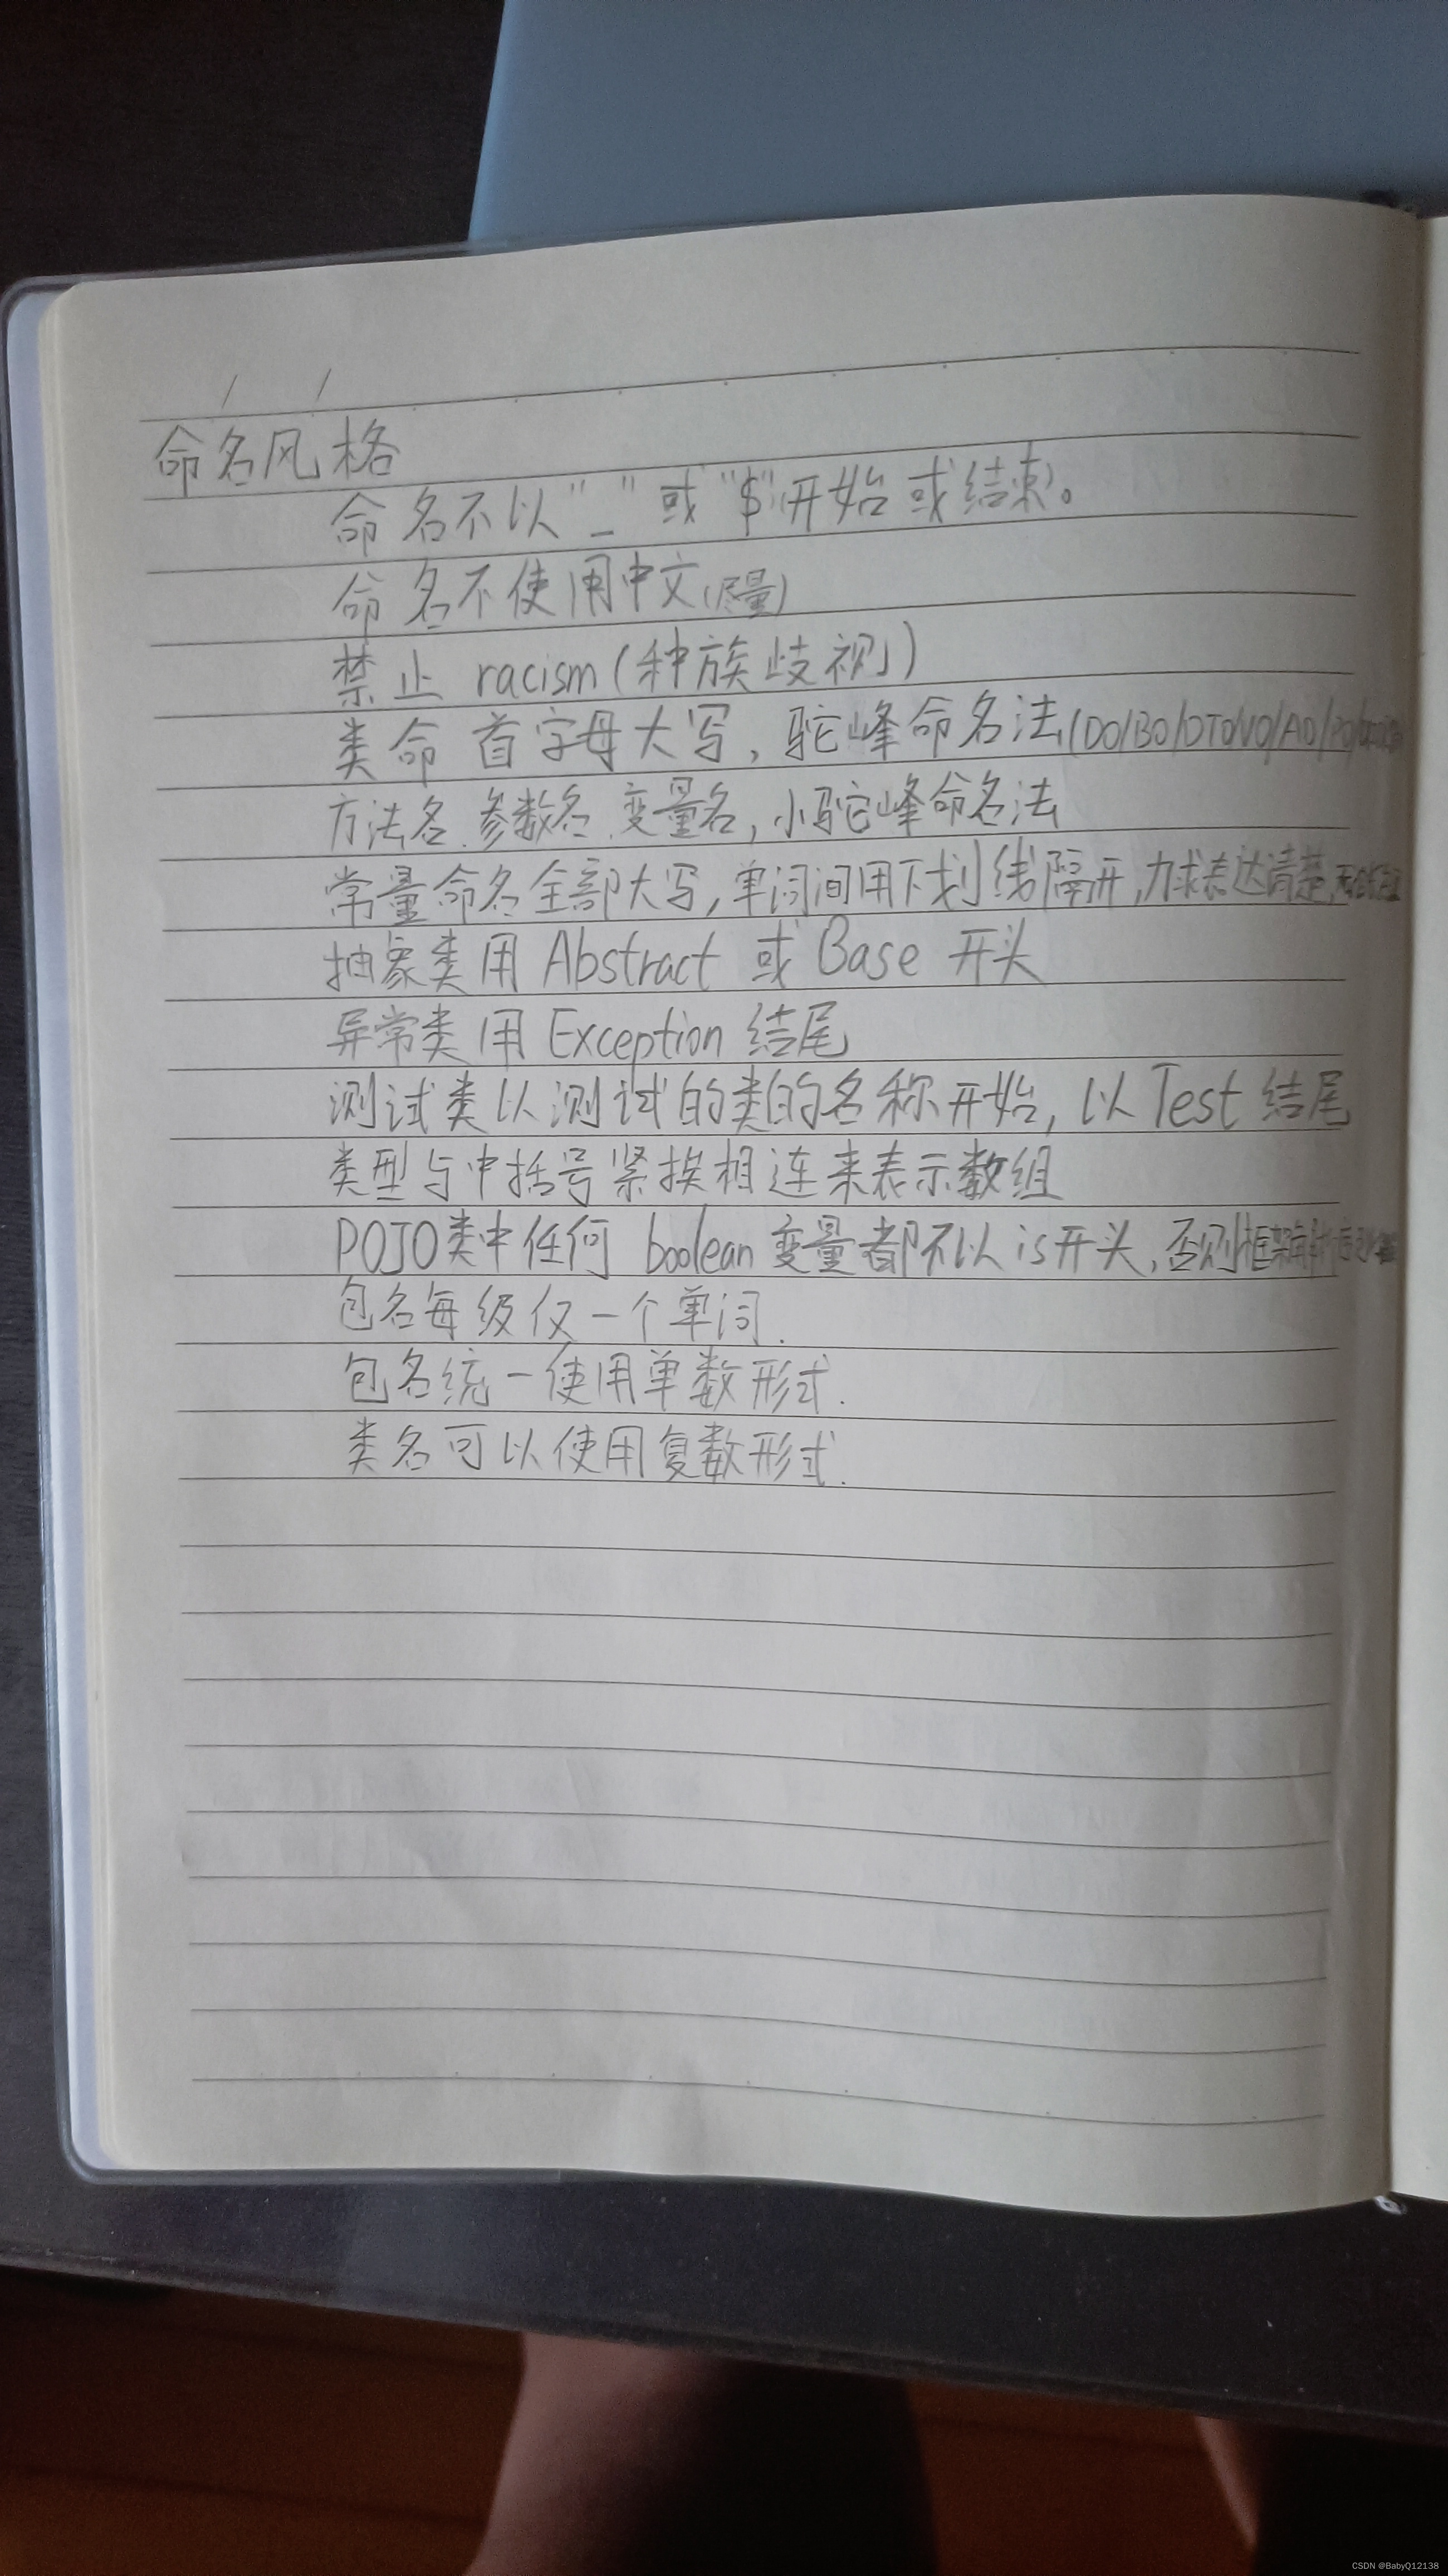 命名风格
命名不以"_"或"$"开始或结束。
命名不使用中文(尽量)
禁止 racism(种族歧视)
类命 首字母大写,驼峰命名法(DO/BO/DTO/VO/AO/PO/
方法名.参数名.变量名,小驼峰命名法
常量命名全部大写,单词间用下划线隔开,力求表达清楚,
抽象类用 Abstract 或 Base 开头
异常类用 Exception 结尾
测试类以测试的类的名称开始,以 Test 结尾
类型与中括号紧挨相连来表示数组
POJO类中任何 boolean 变量都不以 is 开头,否则框架解析
包名每级仅一个单词.
包名统一使用单数形式.
类名可以使用复数形式.
CSDN @BabyQ12138